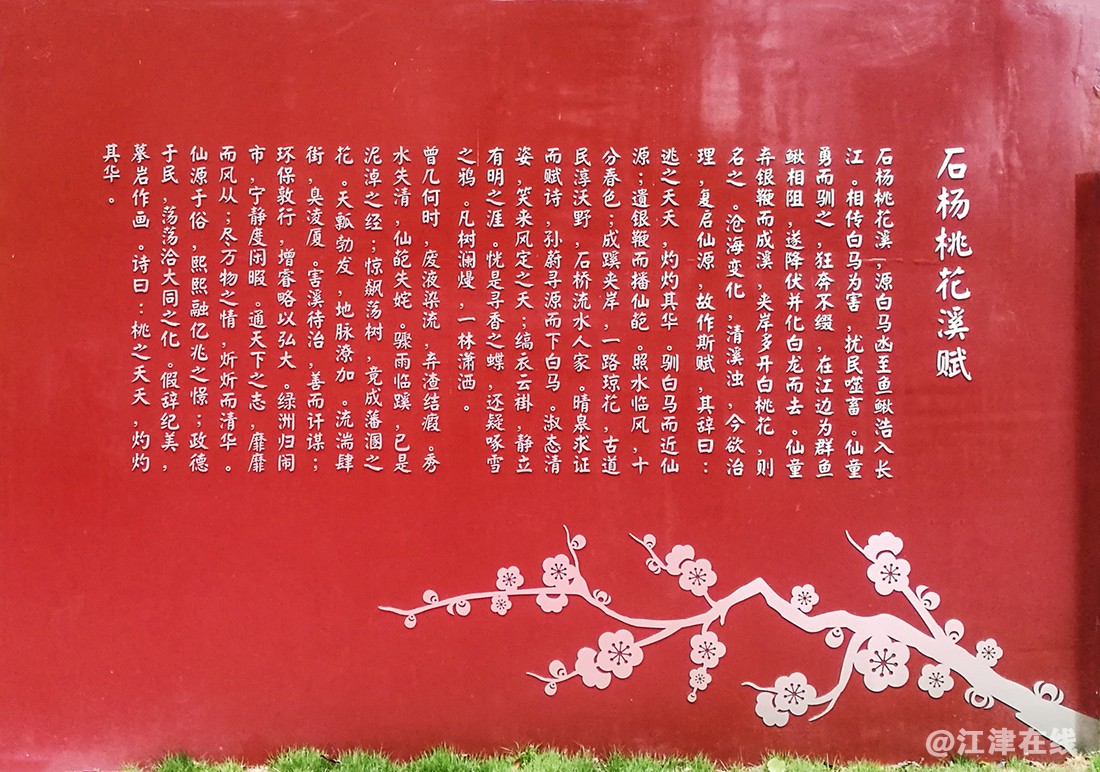 石杨桃花溪赋
石杨桃花溪，源白马凼至鱼鳅浩入长
江。相传白马为害，扰民噬畜。仙童
勇而驯之，狂奔不缀，在江边为群鱼
鳅相阻，遂降伏并化白龙而去。仙童
弃银鞭而成溪，夹岸多开白桃花，则
名之。沧海变化，清溪浊，今欲治
理，复启仙源，故作斯赋，其辞曰：
逃之夭夭，灼灼其华。驯白马而近仙
源；遗银鞭而播仙葩。照水临风，十
分春色；成蹊夹岸，一路琼花，古道
民淳沃野，石桥流水人家。晴皋求证
而赋诗，孙蔚寻源而下白马。淑态清
姿，笑来风定之天；缟衣云褂，静立
有明之涯。恍是寻香之蝶，还疑啄雪
之鸦。凡树澜熳，一林潇洒。
曾几何时，废液染流，弃渣结瘕。秀
水失清，仙葩失姹。骤雨临蹊，已是
泥淖之经；惊飙荡树，竟成藩溷之
花。天瓢勃发，地脉潦加。流湍肆
街，臭凌厦。害溪待治，善而讦谋；
环保敦行，增睿略以弘大。绿洲归闹
市，宁静度闲暇。通天下之志，靡靡
而风从；尽万物之情，炘炘而清华。
仙源于俗，熙熙融亿兆之憬；政德
于民，荡荡洽大同之化。假辞纪美，
摹岩作画。诗曰：桃之夭夭，灼灼
其华。
@江津在线